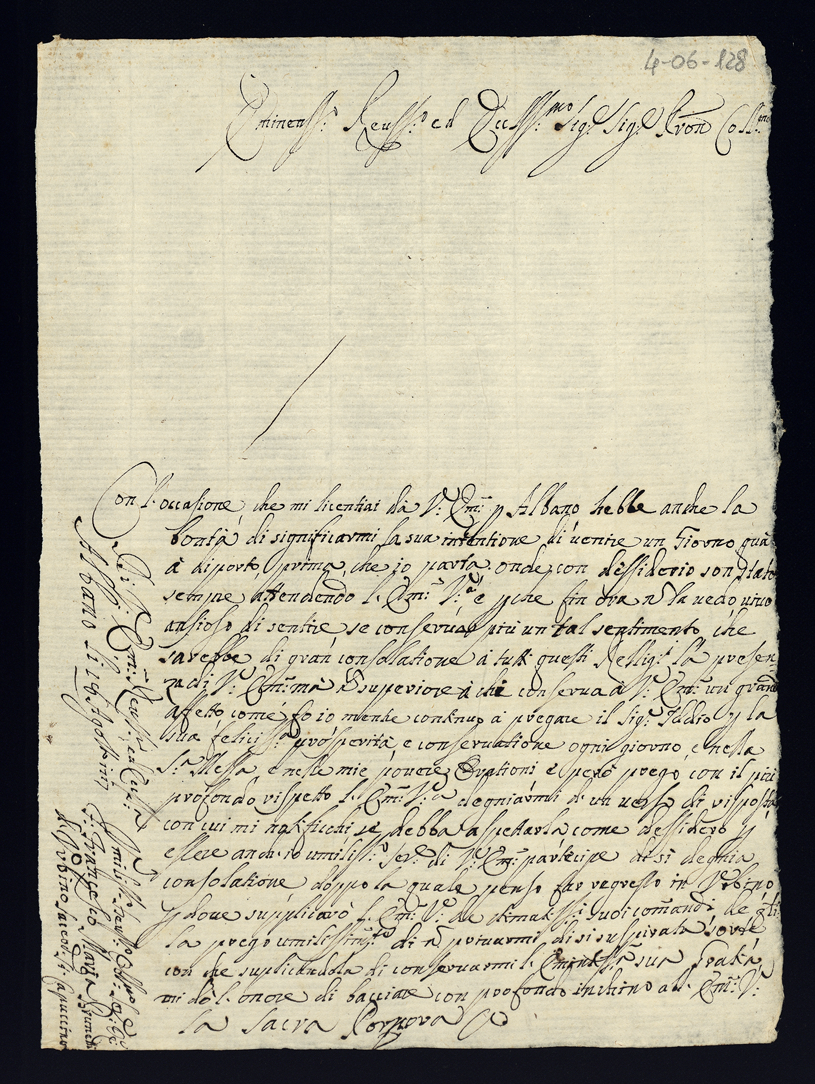 4-06-128
Eminenss:o Reuss:o ed Eccss:mo Sig:r Sig:r Pron Coll:mo
Con l'occasione, che mi licentiai da V: Em:a p Albano hebbe anche la
bontà di significarmi la sua intentione di uenire un Giorno quà
à diporto, prima, che io parta, onde con dessiderio son stato
sempre attendendo l'Em:a V:a e pche fin ora n la uedo uiuo
ansioso di sentire se conserua più un tal sentimento, che
sarebbe di gran consolatione à tutti questi Relig:i la presen
za di V: Em:a ma à superiore à chi conserua à V: Em:a un grand
affetto come fo io mentre continuo à pregare il Sig:r Iddio p la
sua feliciss:a prosperità e conseruatione ogni giorno e nella
S:a Messa e nelle mie pouere Orationi e però prego con il più
profondo rispetto l'Em:a V:a degniarmi di un uerso di risposta
con cui mi notifichi se debba aspettarla come dessidero p
essere anch'io umiliss:o Ser:e di V: Em:a partecipe di si degnia
consolatione doppo la quale penso far regresso in Vrbino
p doue supplicarò l'Em:a V: de stimatiss:i suoi comandi de q:ti
la prego umilissim:te di n priuarmi di si suspirata sorte
con che suplicandola di conseruarmi l' sua Gratia
mi dò l'onore di bacciare con profondo inchino all'Em:a V:
la Sacra Porpora
Di V: Em:a Reuss:a ed Ecc:a
Albano li 19 Agosto
Vmiliss:o Deu:o Obl:o Se:
F: Angelo Maria
d'Vrbino Sacer: Capuccino